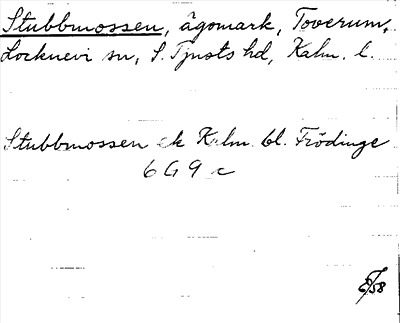 Stubbmossen, ägomark, Toverum,
Locknevi sn, S. Tjusts hd, Kalm. l.
Stubbmossen ek Kalm. bl. Frödinge
6G9c